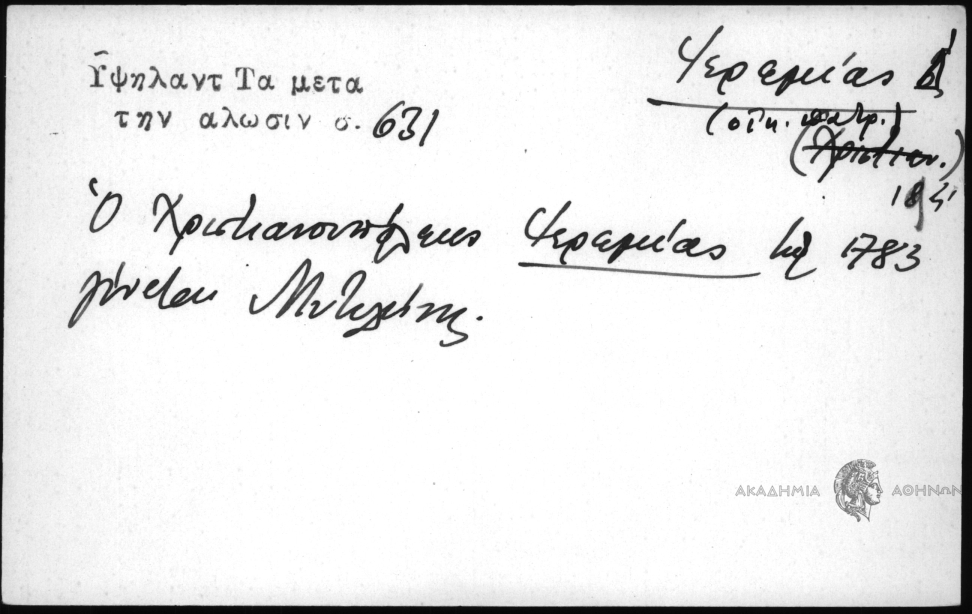 Ὑψηλαντ Τα μετα
την αλωσιν σ. 631
Ἱερεμίας Δ'
(οἰκ. πατρ.)
Ὁ Χριστιανουπόλεως Ἱερεμίας τῷ 1783
γίνεται Μυτιλήνης.
ΑΚΑΔΗΜΙΑ ΑΘΗΝΩΝ